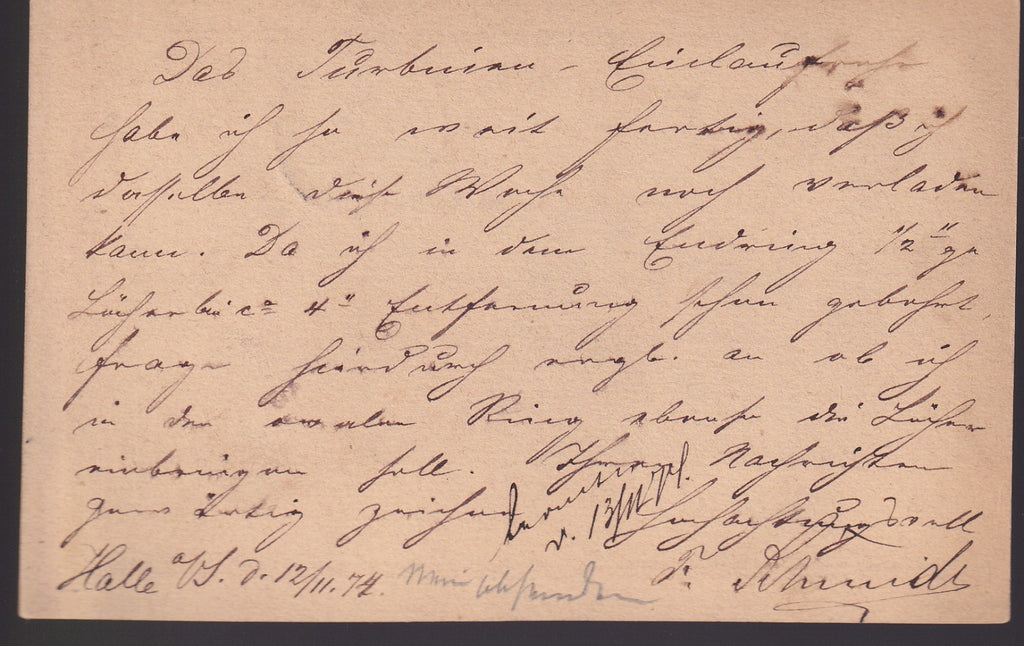 Das Turbinen-Einlaufrohr
habe ich so weit fertig, daß ich
dasselbe diese Woche noch verladen
kann. Da ich in dem Endring 1/2"ge
Löcher bei ca 4" Entfernung schon gebohrt,
frage hierdurch ergb. an ob ich
in den ovalen Ring ebenso die Löcher
einbringen soll. Ihren Nachrichten
gewärtig zeichnet Hochachtungsvoll
v. 13/11 74.
Halle a/S. d. 12/11. 74. F. Schmidt
absenden